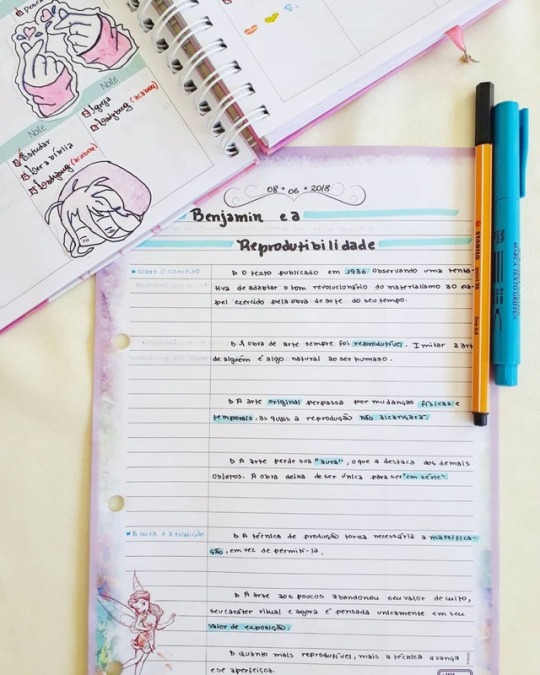 Peace
Note
Igreja
Ladybug (acabou)
Note
Estudar
Ler a bíblia
Ladybug (acabou)
08 • 06 • 2018
Benjamin e a
Reprodutibilidade
Sobre o conceito
O texto publicado em 1936 observando uma tenta-
tiva de adaptar o tom revolucionário do materialismo ao pa-
pel exercido pela obra de arte do seu tempo.
A obra de arte sempre foi reprodutível. Imitar a arte
de alguém é algo natural ao ser humano.
A arte original perpassa por mudanças físicas e
temporais, as quais a reprodução não alcançará.
A arte perde sua "aura", o que a destaca dos demais
objetos. A obra deixa de ser única para ser "em série".
A aura e a tradição
A técnica de produção torna necessária a massifica-
ção, em vez de permiti-la.
A arte aos poucos abandonou seu valor de culto,
seu caráter ritual e agora é pensada unicamente em seu
valor de exposição.
Quanto mais reprodutível, mais a técnica avança
e se aperfeiçoa.
STABILO